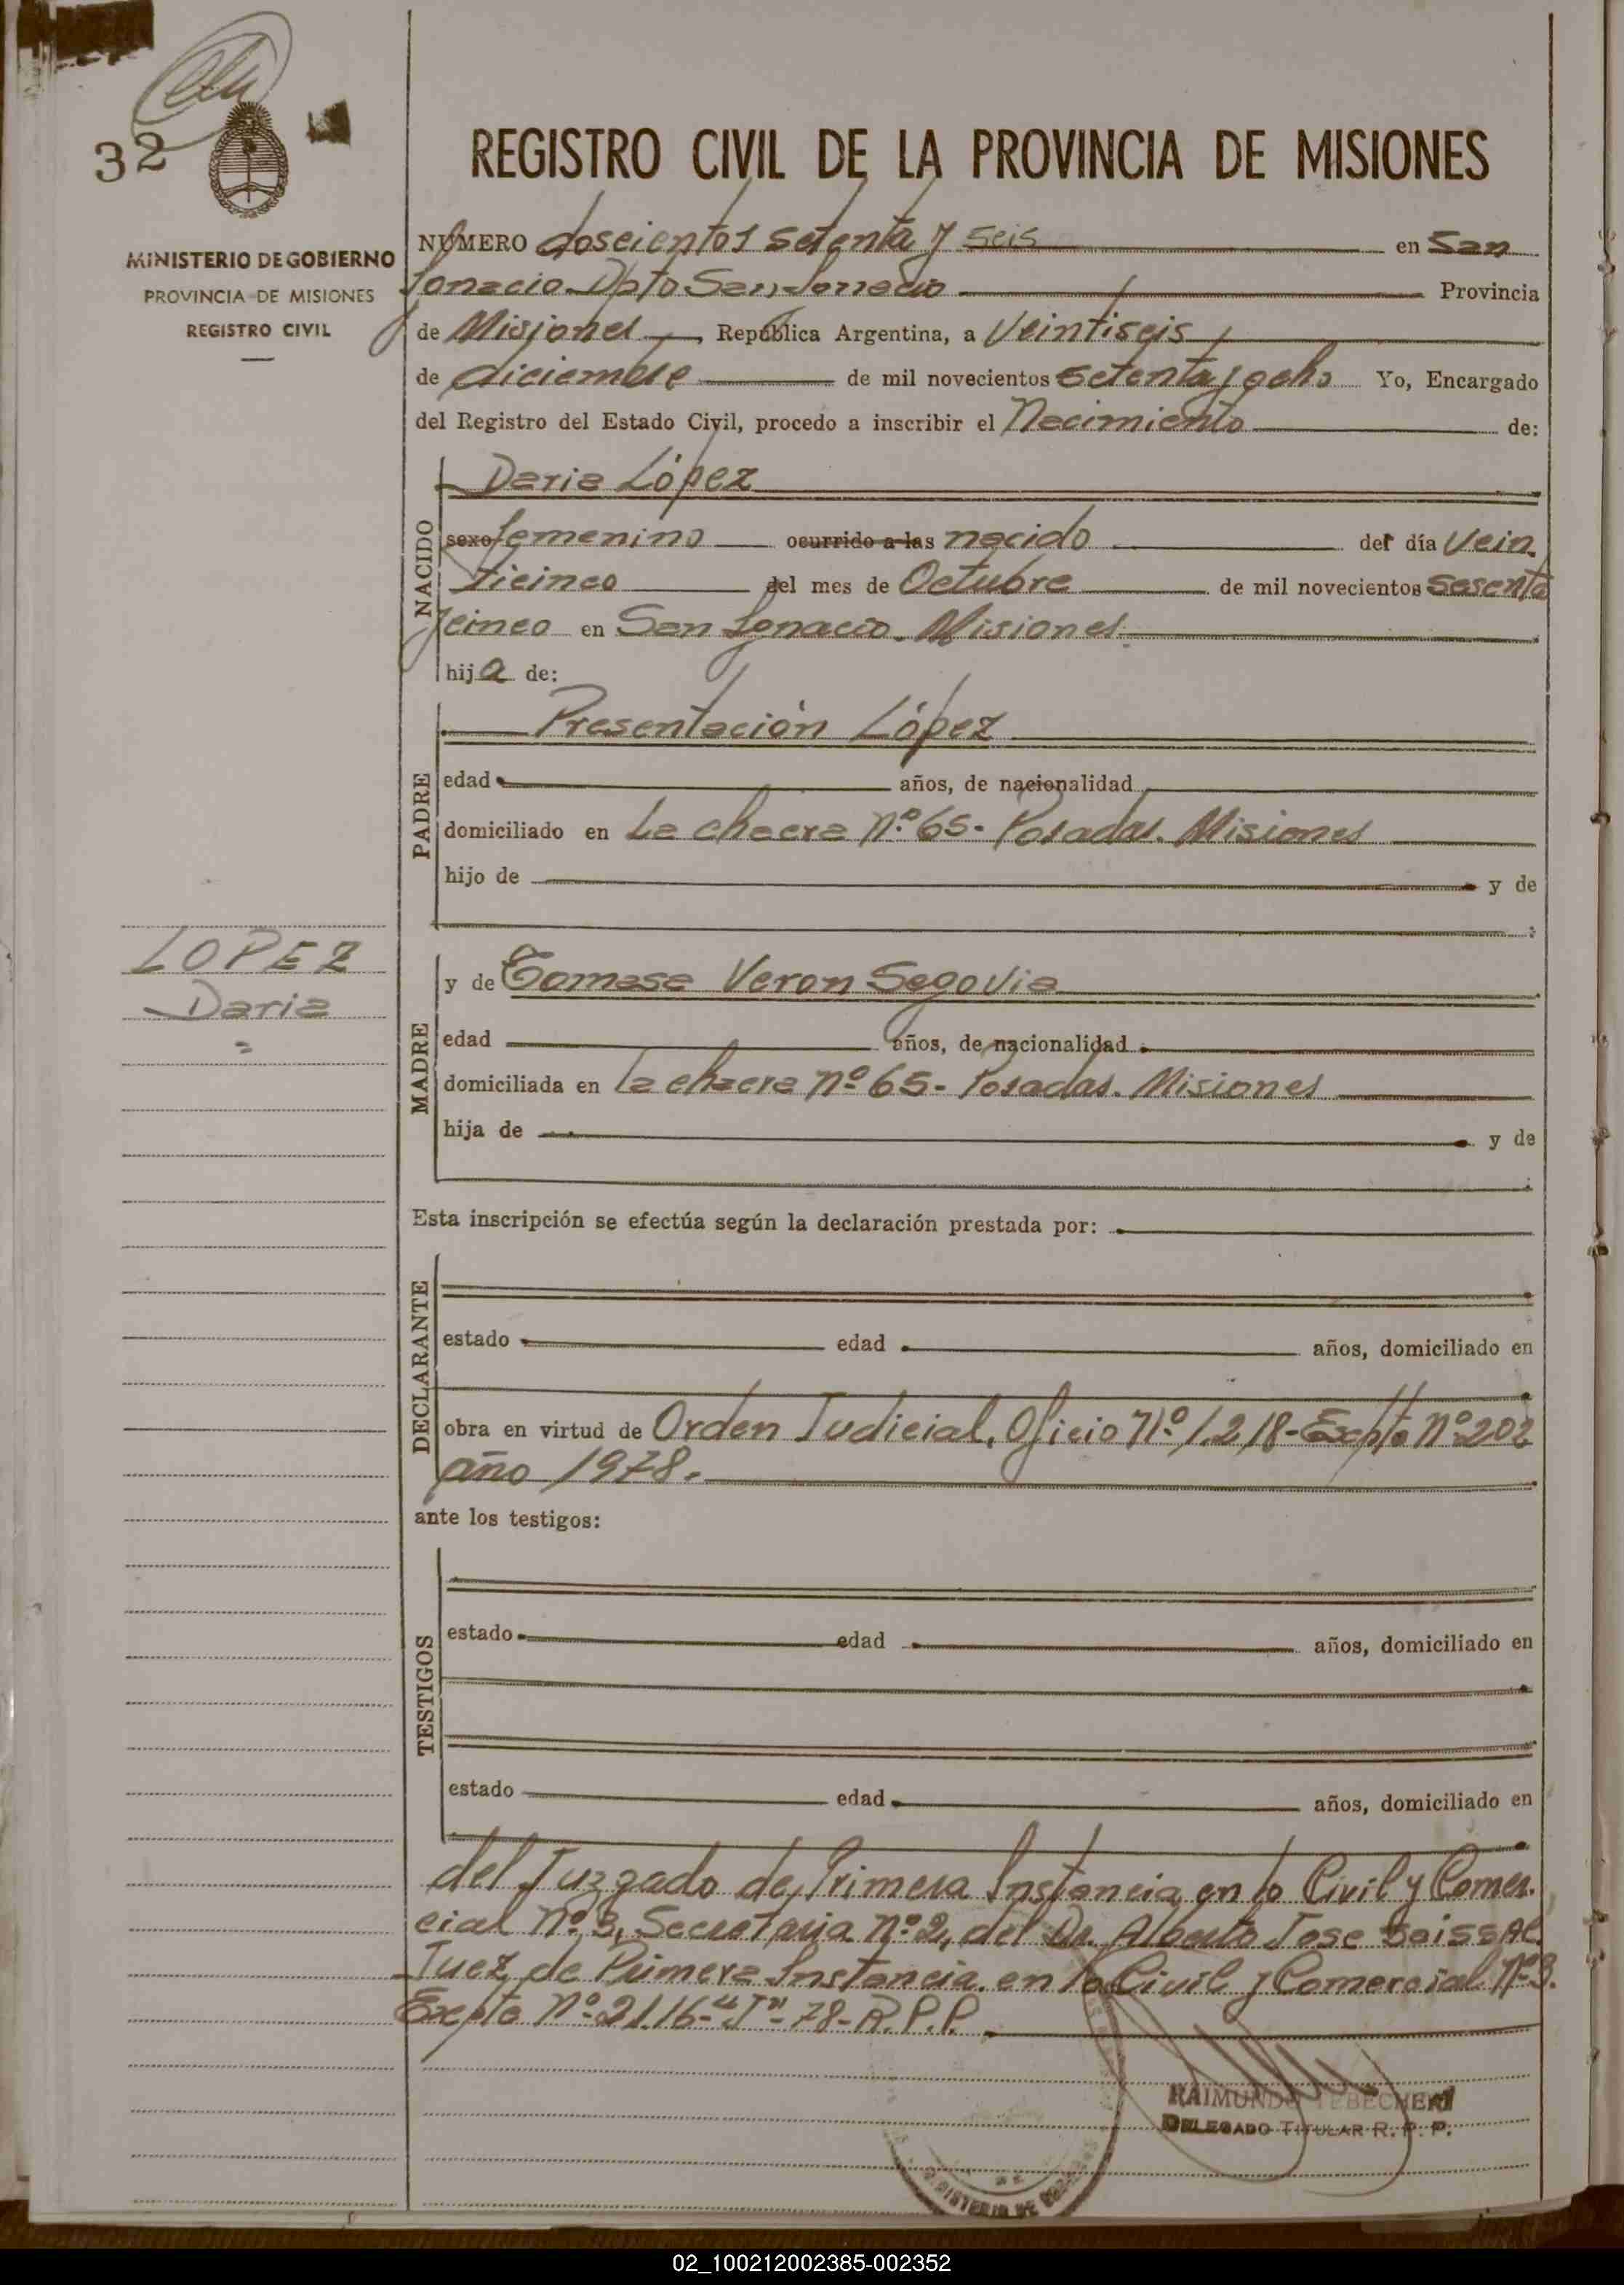 32
MINISTERIO DE GOBIERNO
PROVINCIA DE MISIONES
REGISTRO CIVIL
LOPEZ
Daria
REGISTRO CIVIL DE LA PROVINCIA DE MISIONES
NUMERO doscientos setenta y seis en San
Ignacio Dpto San Ignacio Provincia
de Misiones, República Argentina, a Veintiseis
de diciembre de mil novecientos setenta y ocho Yo, Encargado
del Registro del Estado Civil, procedo a inscribir el Nacimiento de:
NACIDO
Daria López
sexo femenino ocurrido a las nacido del día Vein
ticinco del mes de Octubre de mil novecientos sesenta
y cinco en San Ignacio. Misiones.
hija de:
PADRE
Presentación López
edad años, de nacionalidad
domiciliado en La chacra nº 65- Posadas. Misiones
hijo de y de
MADRE
y de Tomasa Veron Segovia
edad años, de nacionalidad
domiciliada en La chacra nº 65- Posadas. Misiones
hija de y de
Esta inscripción se efectúa según la declaración prestada por:
DECLARANTE
estado edad años, domiciliado en
obra en virtud de Orden Judicial, Oficio Nº 1.218- Expte nº 202
año 1978.
ante los testigos:
TESTIGOS
estado edad años, domiciliado en
estado edad años, domiciliado en
del Juzgado de Primera Instancia en lo Civil y Comer.
cial nº 3, Secretaria nº 2, del Dr. Alberto Jose
Juez de Primera Instancia en lo Civil y Comercial Nº 3.
Expte nº 2116-"J"-78-R.P.P.
RAIMUNDO TEBECHERI
DELEGADO TITULAR R. P. P.
MINISTERIO DE
02_100212002385-002352